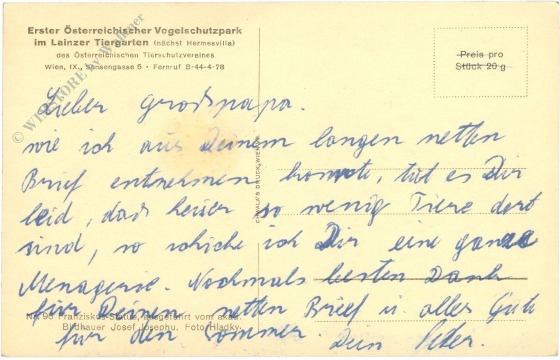 Erster Österreichischer Vogelschutzpark
im Lainzer Tiergarten (nächst Hermesvilla)
des Österreichischen Tierschutzvereines
Wien, IX., Sensengasse 5 • Fernruf B-44-4-78
Preis pro
Stück 20 g
Lieber Grosspapa.
wie ich aus Deinem langen netten
Brief entnehmen konnte, tut es Dir
leid, dass heuer so wenig Tiere dort
sind, so schicke ich Dir eine ganze
Menagerie. Nochmals besten Dank
für Deinen netten Brief u. alles Gute
für den Sommer. Dein Peter.
Nr. 90 Franziskus-Statue, ausgeführt vom akad.
Bildhauer Josef Josephu. Foto Hladky.
© WIENTORE by Wallner